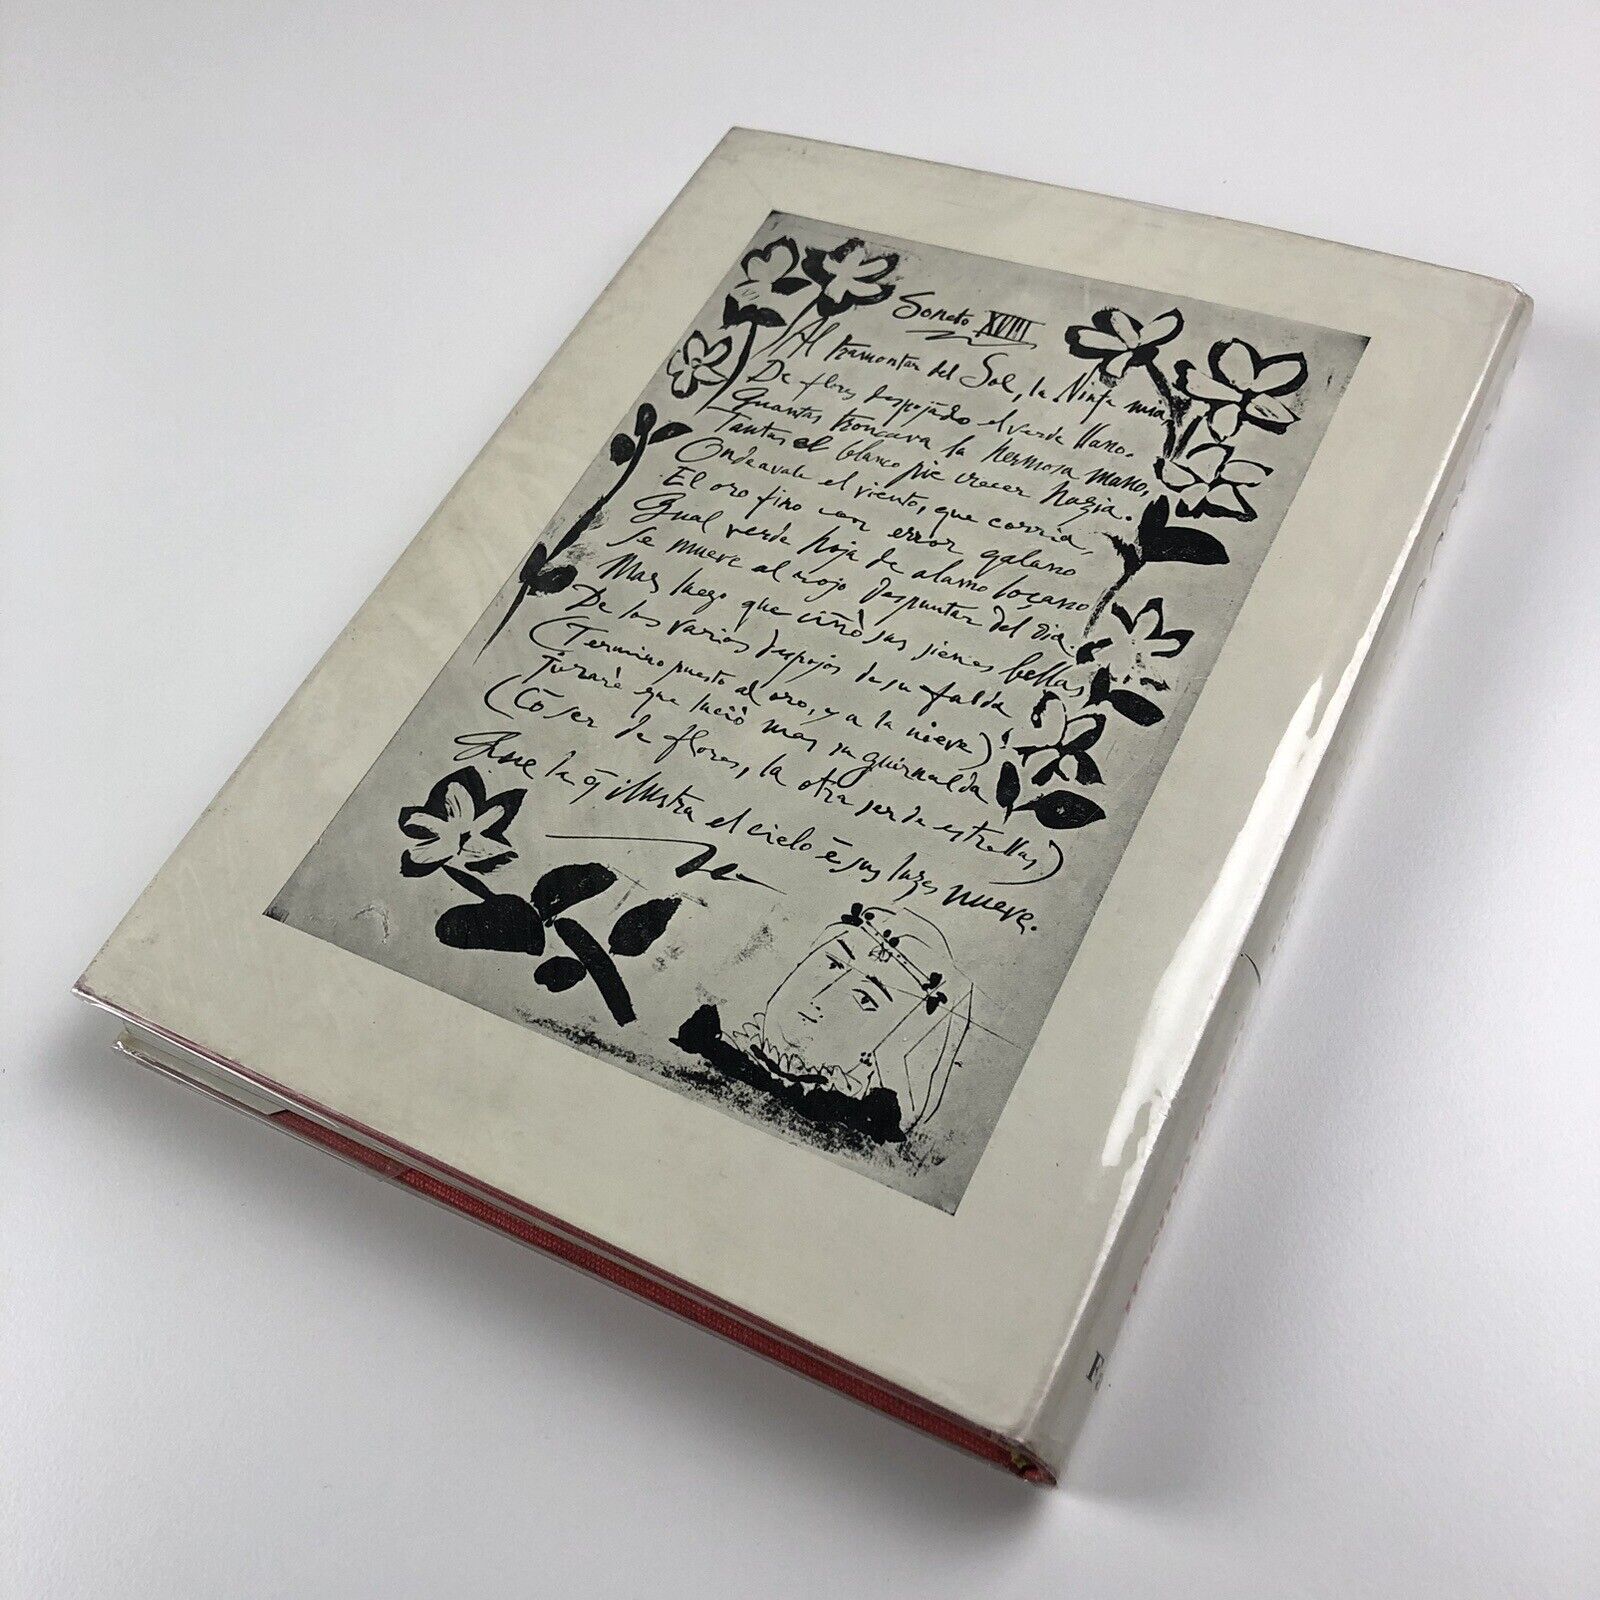 Soneto XVIII
Al tramontar del Sol, la Ninfa mia,
De flores despojādo el verde llano.
Quantas troncava la hermosa mano,
Tantas el blanco pie crecer hazia.
Ondeavale el viento, que corria,
El oro fino con error galano
Qual verde hoja de alamo loçano
Se mueve al rojo despuntar del dia.
Mas luego que ciñò sus sienes bellas
De los varios despojos de su falda
(Termino puesto al oro, y a la nieve)
Jurarè que luciò mas su guirnalda
(Cō ser de flores, la otra ser de estrellas)
Que la q̄ illustra el cielo ē sus luzes nueve.
F